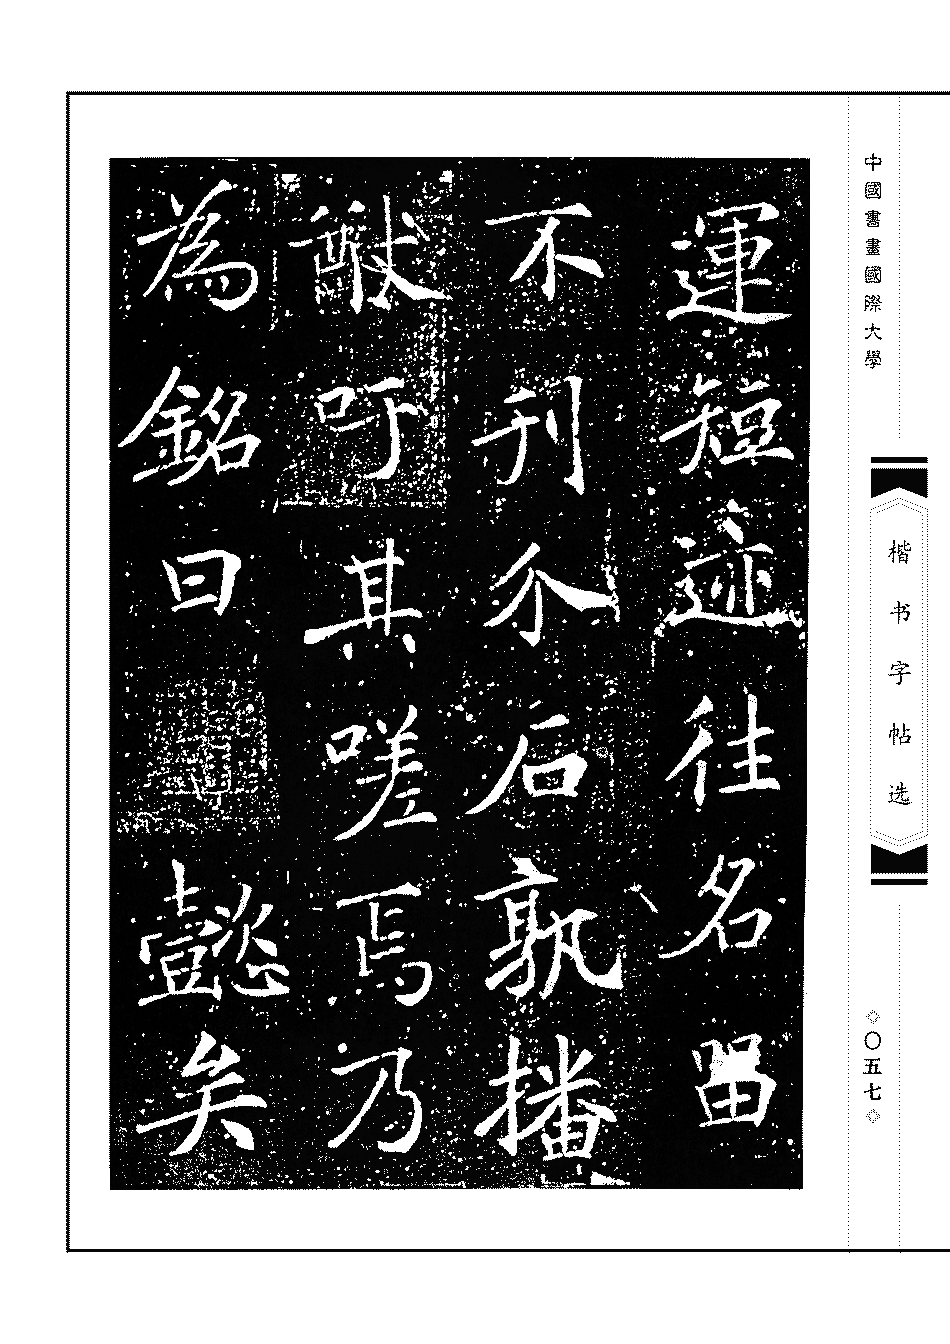 運短迹往名留
不刊介石孰播
猷吁其嗟焉乃
為銘曰
懿矣
中國書畫國際大學
楷书字帖选
◇〇五七◇